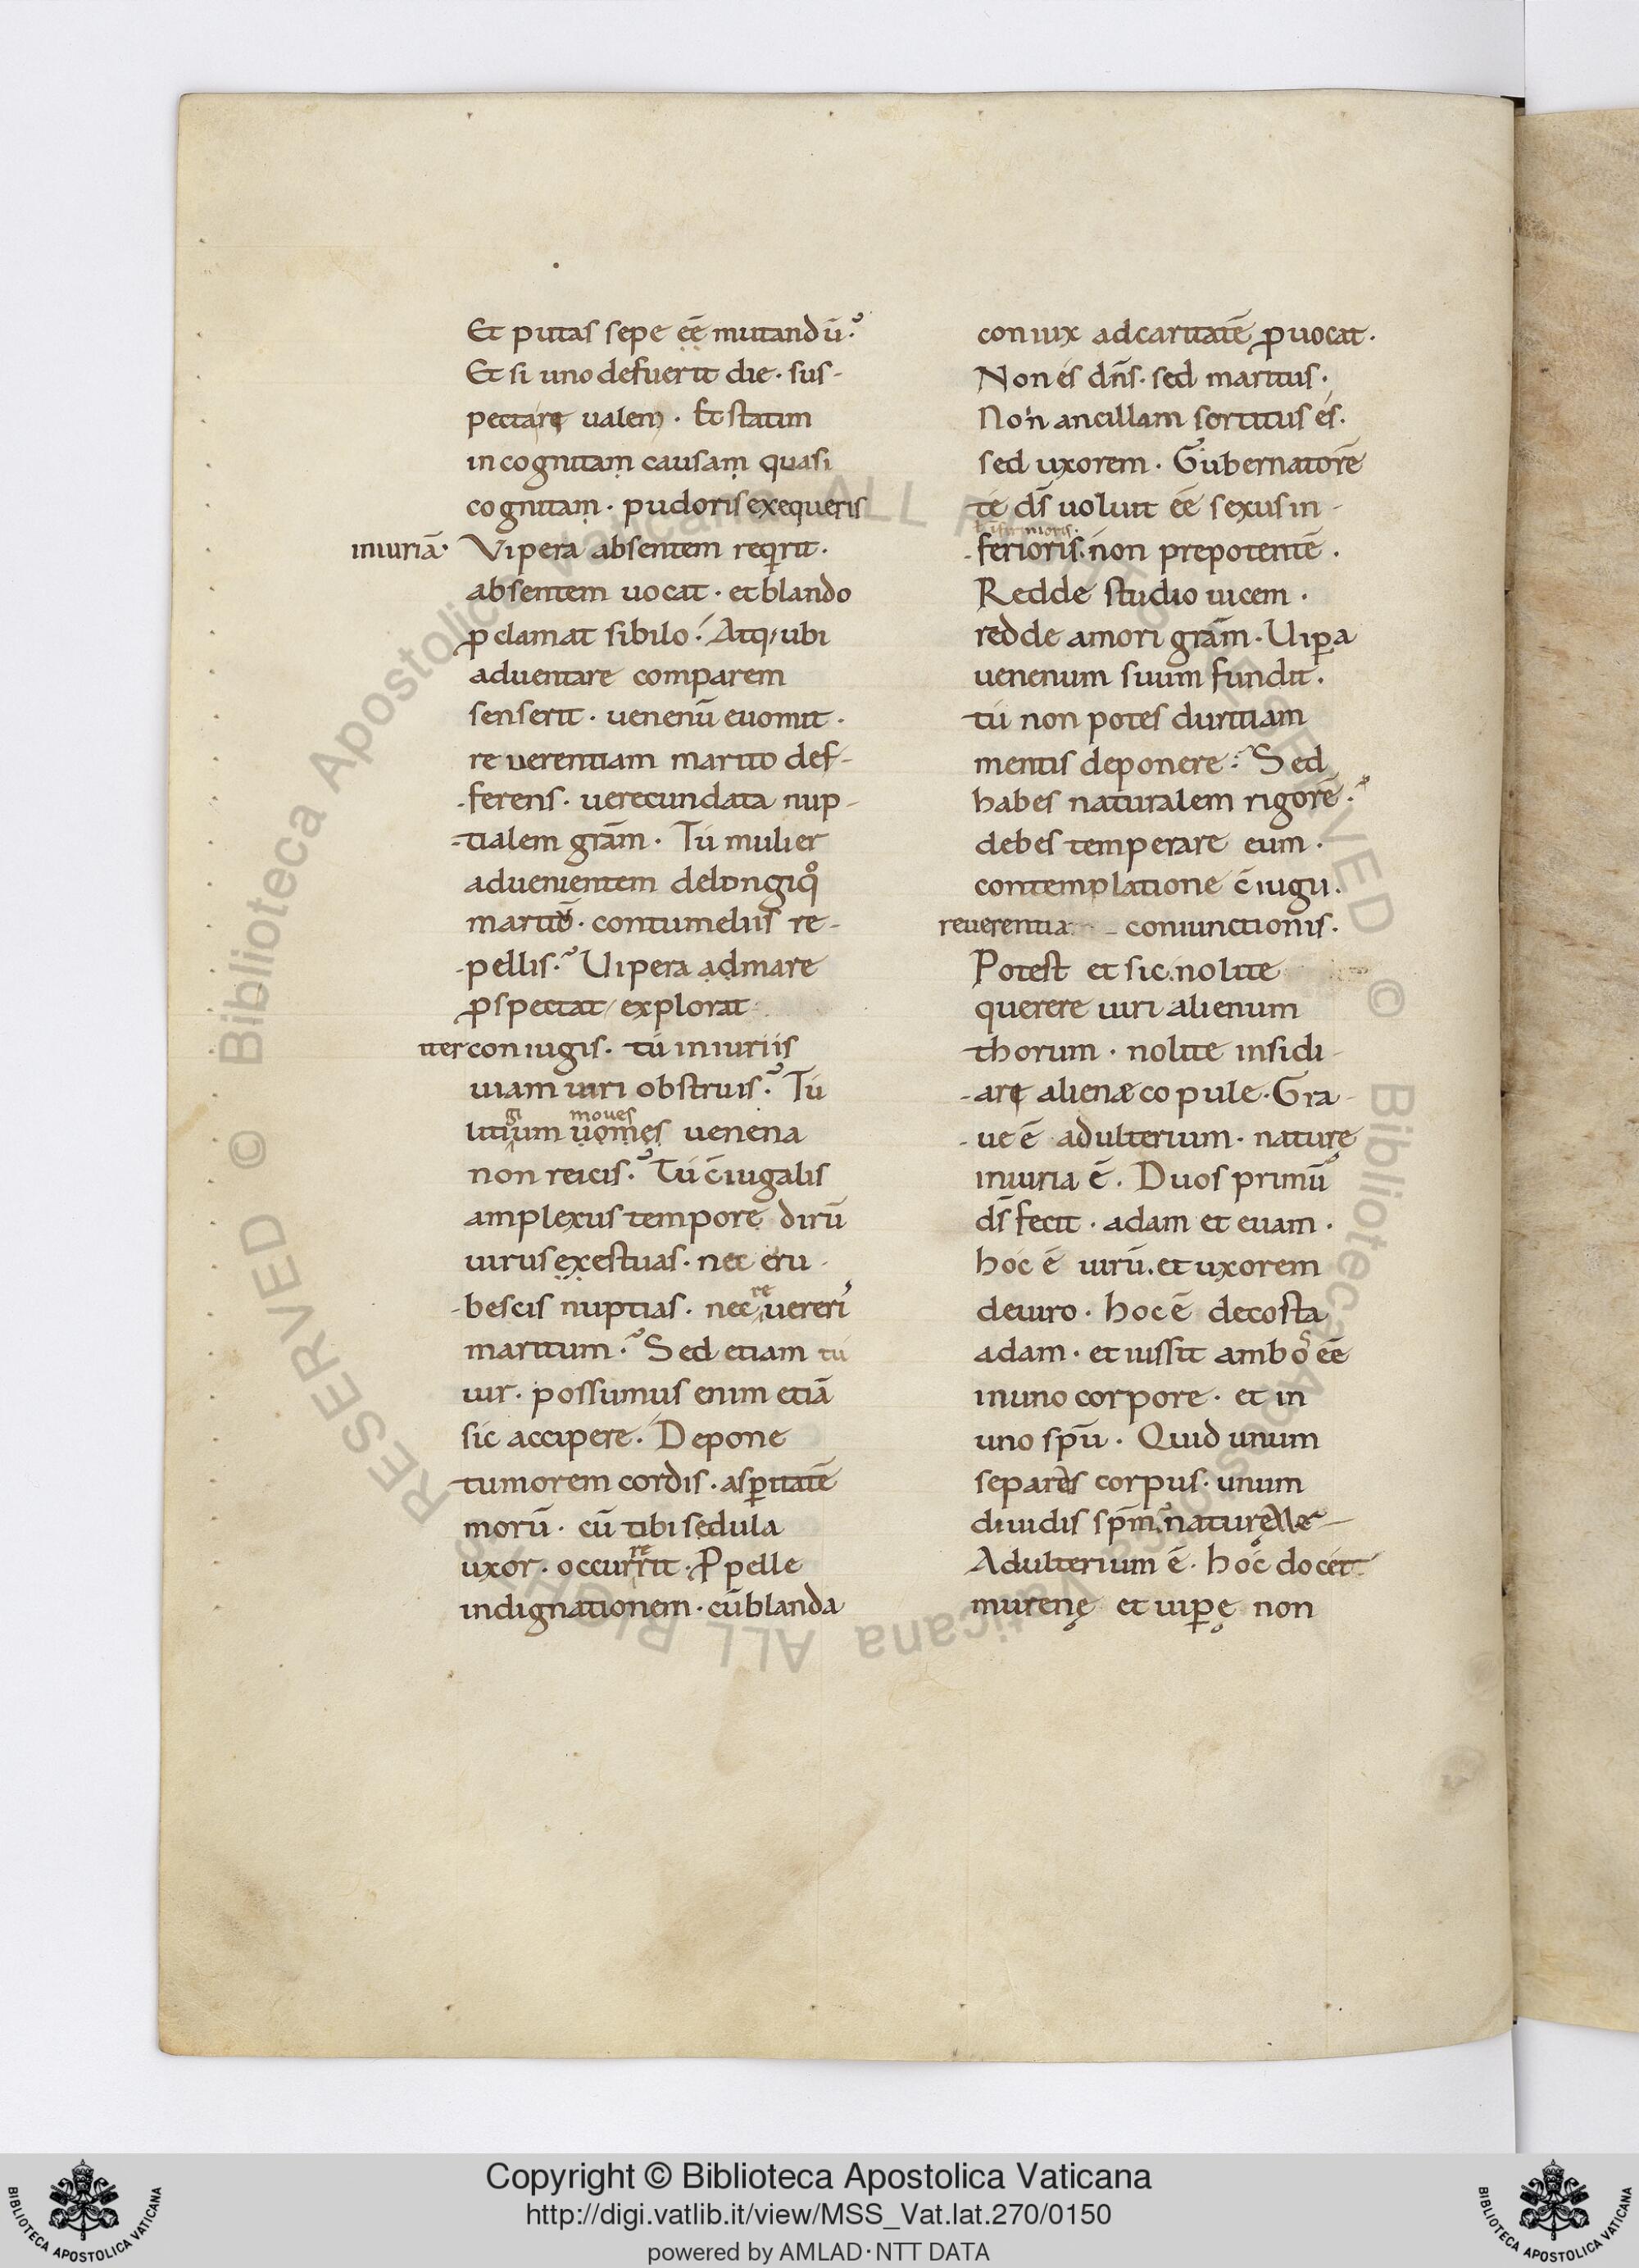 Et putas sepe ee᷃ mutandū·
Et si uno defuerit die· sus-
pectare ualem· Et statim
incognitam causam quasi
cognitam· pudoris exequeris
iniuriā· Vipera absentem req̍rit·
absentem uocat· et blando
ꝓclamat sibilo· Atq; ubi
aduentare comparem
senserit· uenenū euomit·
reuerentiam marito def-
-ferens· uerecundata nup-
-tialem grām· Tú mulier
aduenientem delongiq̊
maritū· contumeliis re-
-pellis· Uipera admare
ꝓspectat explorat
iter coniugis· tú iniuriis
uiam uiri obstruis· Tú
gi moues
litium uomes uenena
non reicis· Tú c̄iugalis
amplexus tempore dirū
uirus exestuas· nec eru-
re
-bescis nuptias· nec uereri
maritum· Sed etiam tú
uir· possumus enim etiā
sic accipere· Depone
tumorem cordis· asꝑitatē
morū· cū tibi sedula
re
uxor· occurrit· Ꝓpelle
indignationem· cū blanda
coniux adcaritatē ꝓuocat·
Non és dn̄s· sed maritus·
Non ancillam sortitus és·
sed uxorem· Gubernatorē
té ds̄ uoluit ēē sexus in-
-ferioris· non prepotentē·
Redde studio uicem·
redde amori grām· Uiꝑa
uenenum suum fundit·
tú non potes duritiam
mentis deponere· Sed
habes naturalem rigorē·
debes temperare eum·
contemplatione c̄iugii·
reuerentia coniunctionis·
Potest et sic· nolite
querere uiri alienum
thorum· nolite insidi-
-are alienæ copule· Gra-
-ue ē adulterium· naturę
iniuria ē· Duos primū
ds̄ fecit· adam et euam·
hoc ē uirū· et uxorem
deuiro· hoc ē decosta
adam· et iussit ambos ēē
inuno corpore· et in
uno spū· Quid unum
separes corpus· unum
diuidis spm̄· naturę
Adulterium ē· hoc docet
murenę et uiꝑę non
Copyright © Biblioteca Apostolica Vaticana
http://digi.vatlib.it/view/MSS_Vat.lat.270/0150
powered by AMLAD·NTT DATA
BIBLIOTECA APOSTOLICA VATICANA
BIBLIOTECA APOSTOLICA VATICANA
© Biblioteca Apostolica Vaticana ALL RIGHTS RESERVED
© Biblioteca Apostolica Vaticana ALL RIGHTS RESERVED